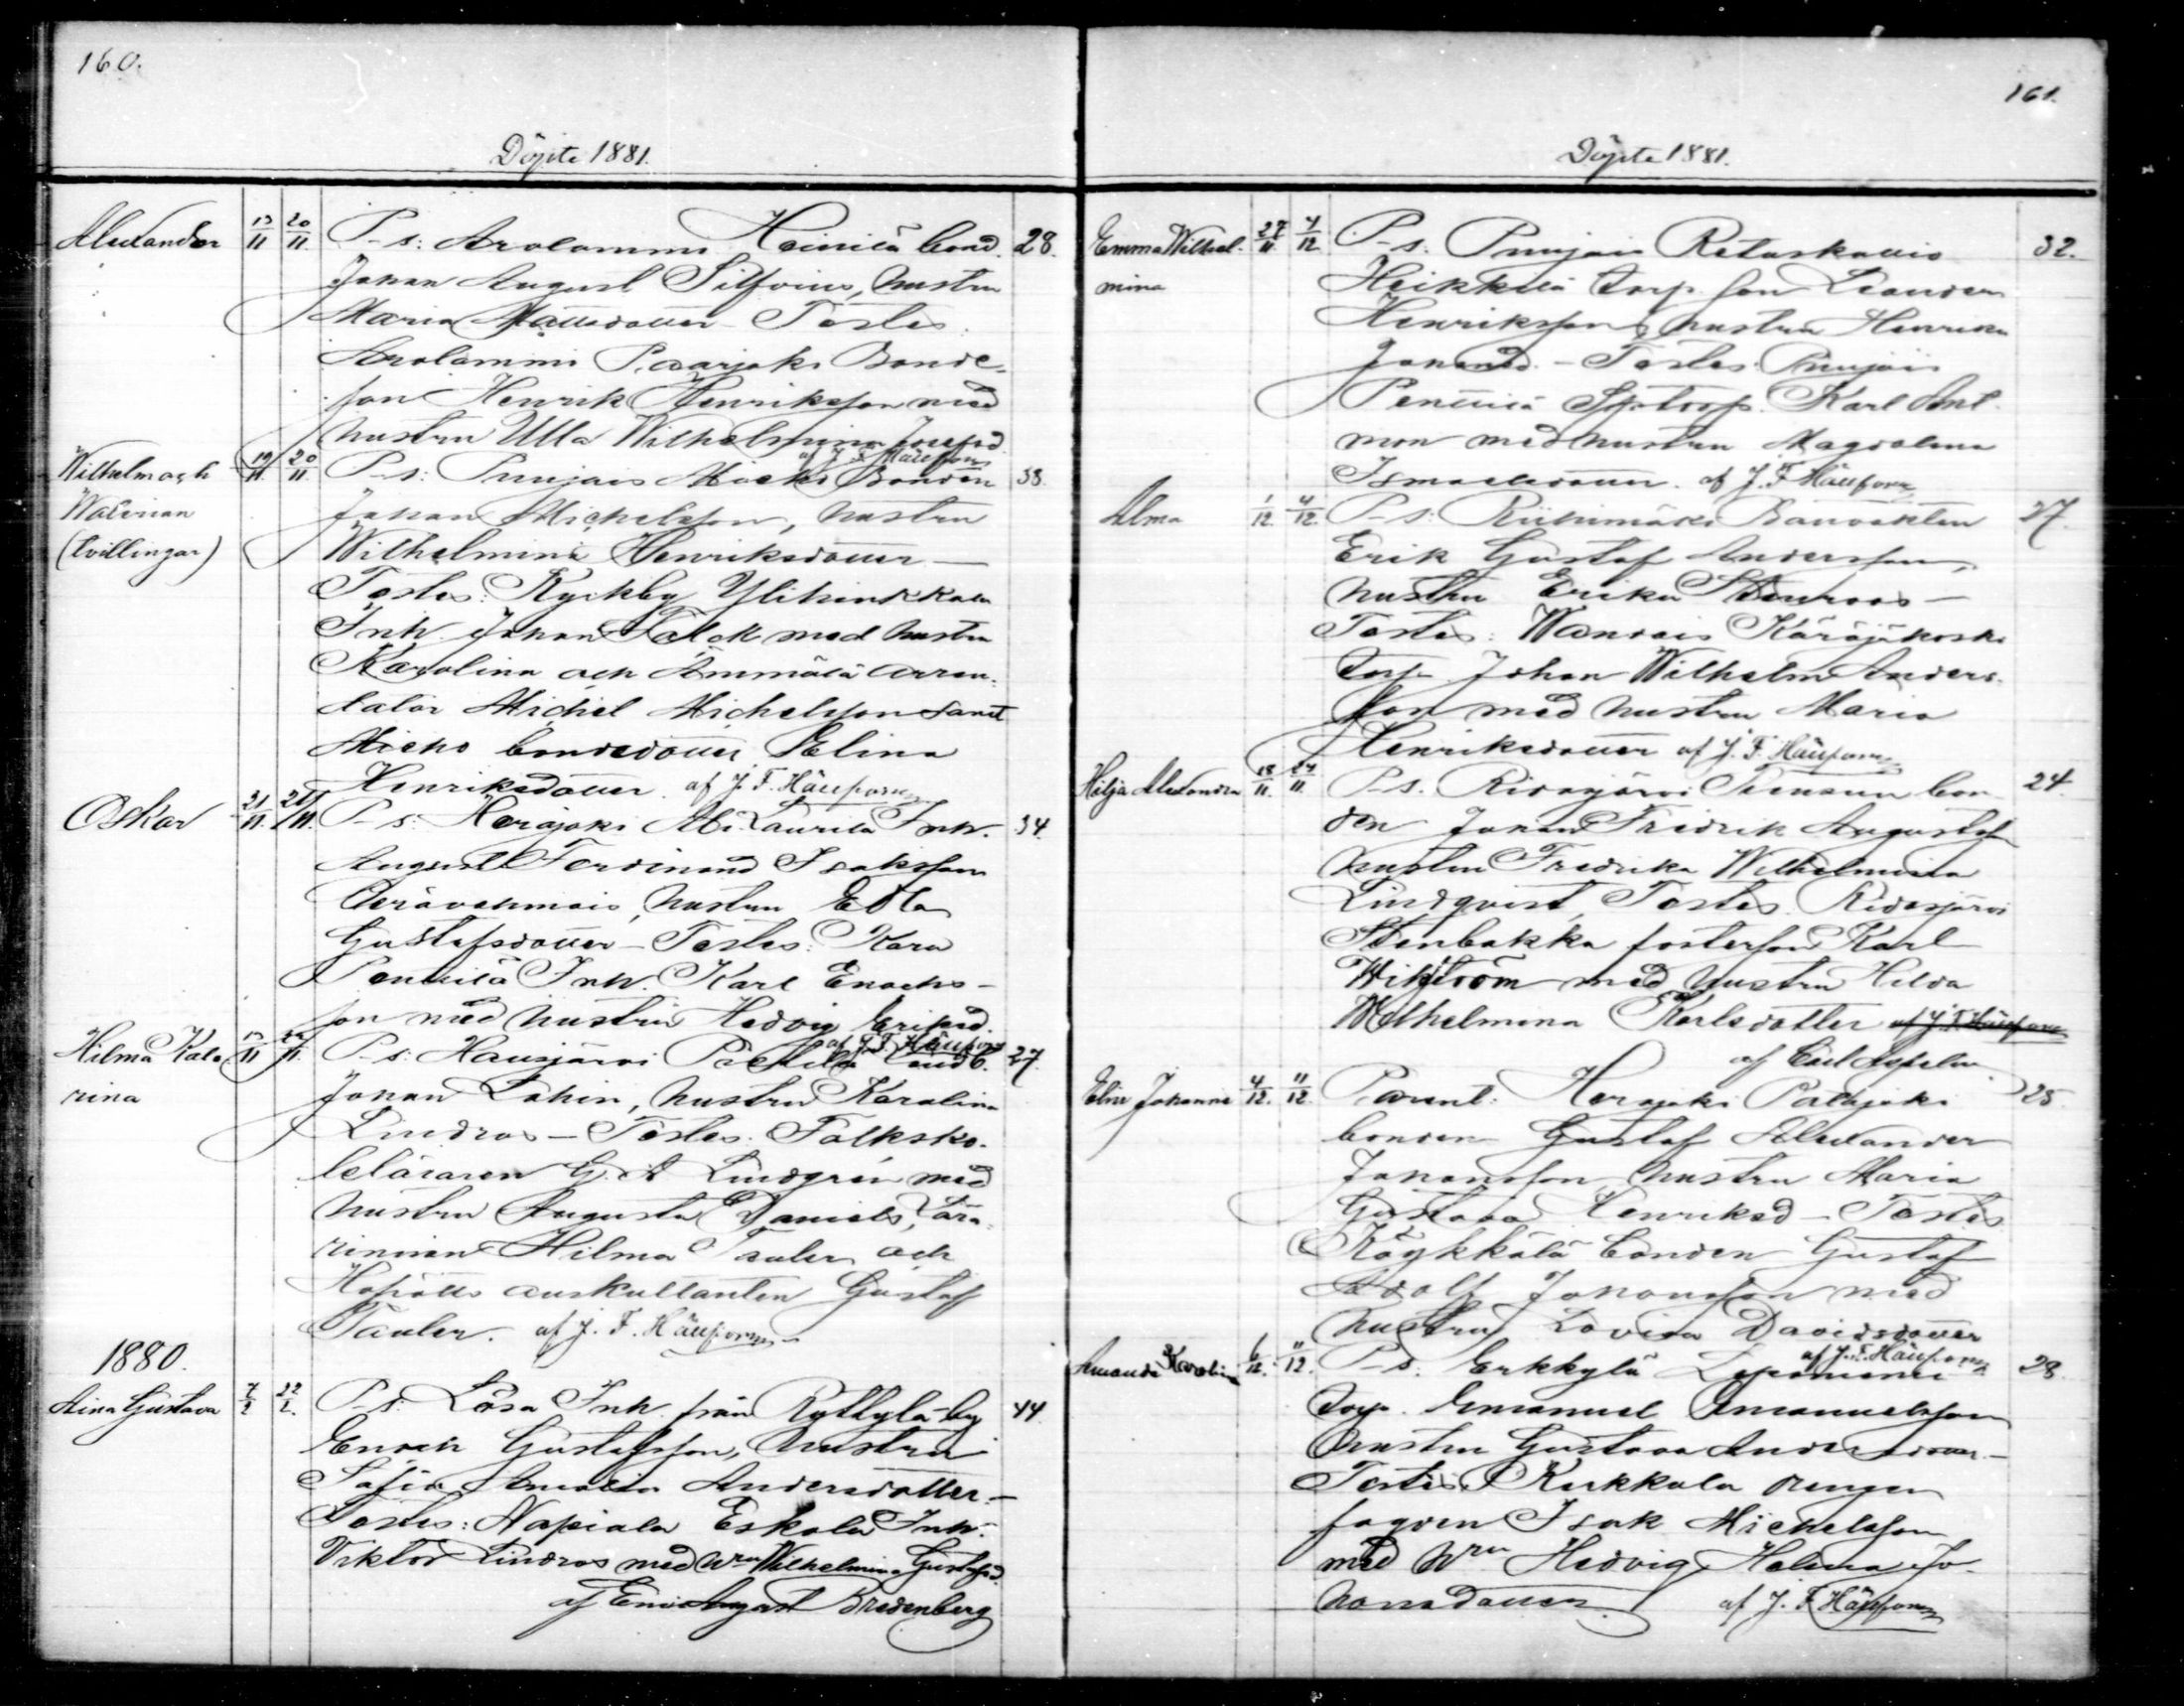 160.
Döpte 1881.
Alexander 13/11 20/11 P-s: Arolammi Heinilä bond. 28.
Johan August Silfvius, hustru
Maria Mattsdotter – Testes:
Arolammi Paarjoki Bonde-
son Henrik Henriksson med
hustru Ulla Wilhelmina Josefsd.
af J. F. Hällfors
Wilhelm och 19/11 20/11 P-s: Punjais Bonden 38.
Walerian Johan Michelsson, hustru
(tvillingar) Wilhelmina Henriksdotter –
Testes: Ryckby
Inh. Johan Falck med hustru
Karolina och Ämmälä arren-
dator Michel Michelsson samt
bondedotter Elina
Henriksdotter. af J. F. Hällfors
Oskar 21/11 P-s: Herajoki Ali Laurila Inh. 34.
August Ferdinand Isaksson
hustru Edla
Gustafsdotter – Testes: Kara
Penttilä Inh. Karl Enochs-
son med hustru Hedvig Eriksd.
af J. F. Hällfors
Hilma Kata- P-s: Hausjärvi 27.
rina Johan Lahin, hustru Karolina
Lindros – Testes: Folksko-
leläraren G. A. Lindgrén med
hustru Augusta Daniels, Lära-
rinnan Hilma Tauler och
auskultanten Gustaf
Tauler. af J. F. Hällfors
1880.
Aina Gustava 7/2 22/2 P-s: Lösa Inh. från Ryttylä by 44.
Enoch Gustafsson, hustru
Sofia Amalia Andersdotter. –
Testes: Napiala Eskola Inh.
Viktor Lindros med hru Wilhelmina Gustafsd.
af August Bredenberg
161.
Döpte 1881.
Emma Wilhel- 27/11 4/12 P-s. Punjais Rataskallio 32.
mina Heikkilä torp. son Leander
Henriksson, hustru Henrika
Johansd. – Testes: Punjais
Penttilä Karl
mon med hustru Magdalena
Ismaelsdotter. af J. F. Hällfors
Alma 1/12 4/12 P-s: Riihimäki Banvakten 27.
Erik Gustaf Andersson,
hustru Erika Stenroos –
Testes: Wantais Käräjäkoski
torp. Johan Wilhelm Anders-
son med hustru Maria
Henriksdotter af J. F. Hällfors
Hilja Alexandra 18/11 27/11 P-s. Ridasjärvi bon- 24.
den Johan Fredrik Augustsf
hustru Fredrika Wilhelmina
Lindqvist, Testes Ridasjärvi
Stenbakka fosterson Karl
Wikström med hustru Hilda
Wilhelmina Karlsdotter af J. F. Hällfors
af Emil Aspelin
Elin Johanna 4/12. 11/12. Parent: Herajoki Paltajoki 25.
bonden Gustaf Alexander
Johansson, hustru Maria
Gustava Henriksd – Testes
Röykkälä bonden Gustaf
Adolf Johansson med
hustru Lovisa Davidsdotter
af J. F. Hällfors
Amanda Karolina 6/12. 11/12. P-s. Erkkylä 28.
torp. Emanuel Emanuelsson
hustru Gustava Andersdotter –
Testes: Kurkkala drenge-
fogden Isak Michelsson
med hru Hedvig Helena Jo-
hansdotter. af J. F. Hällfors